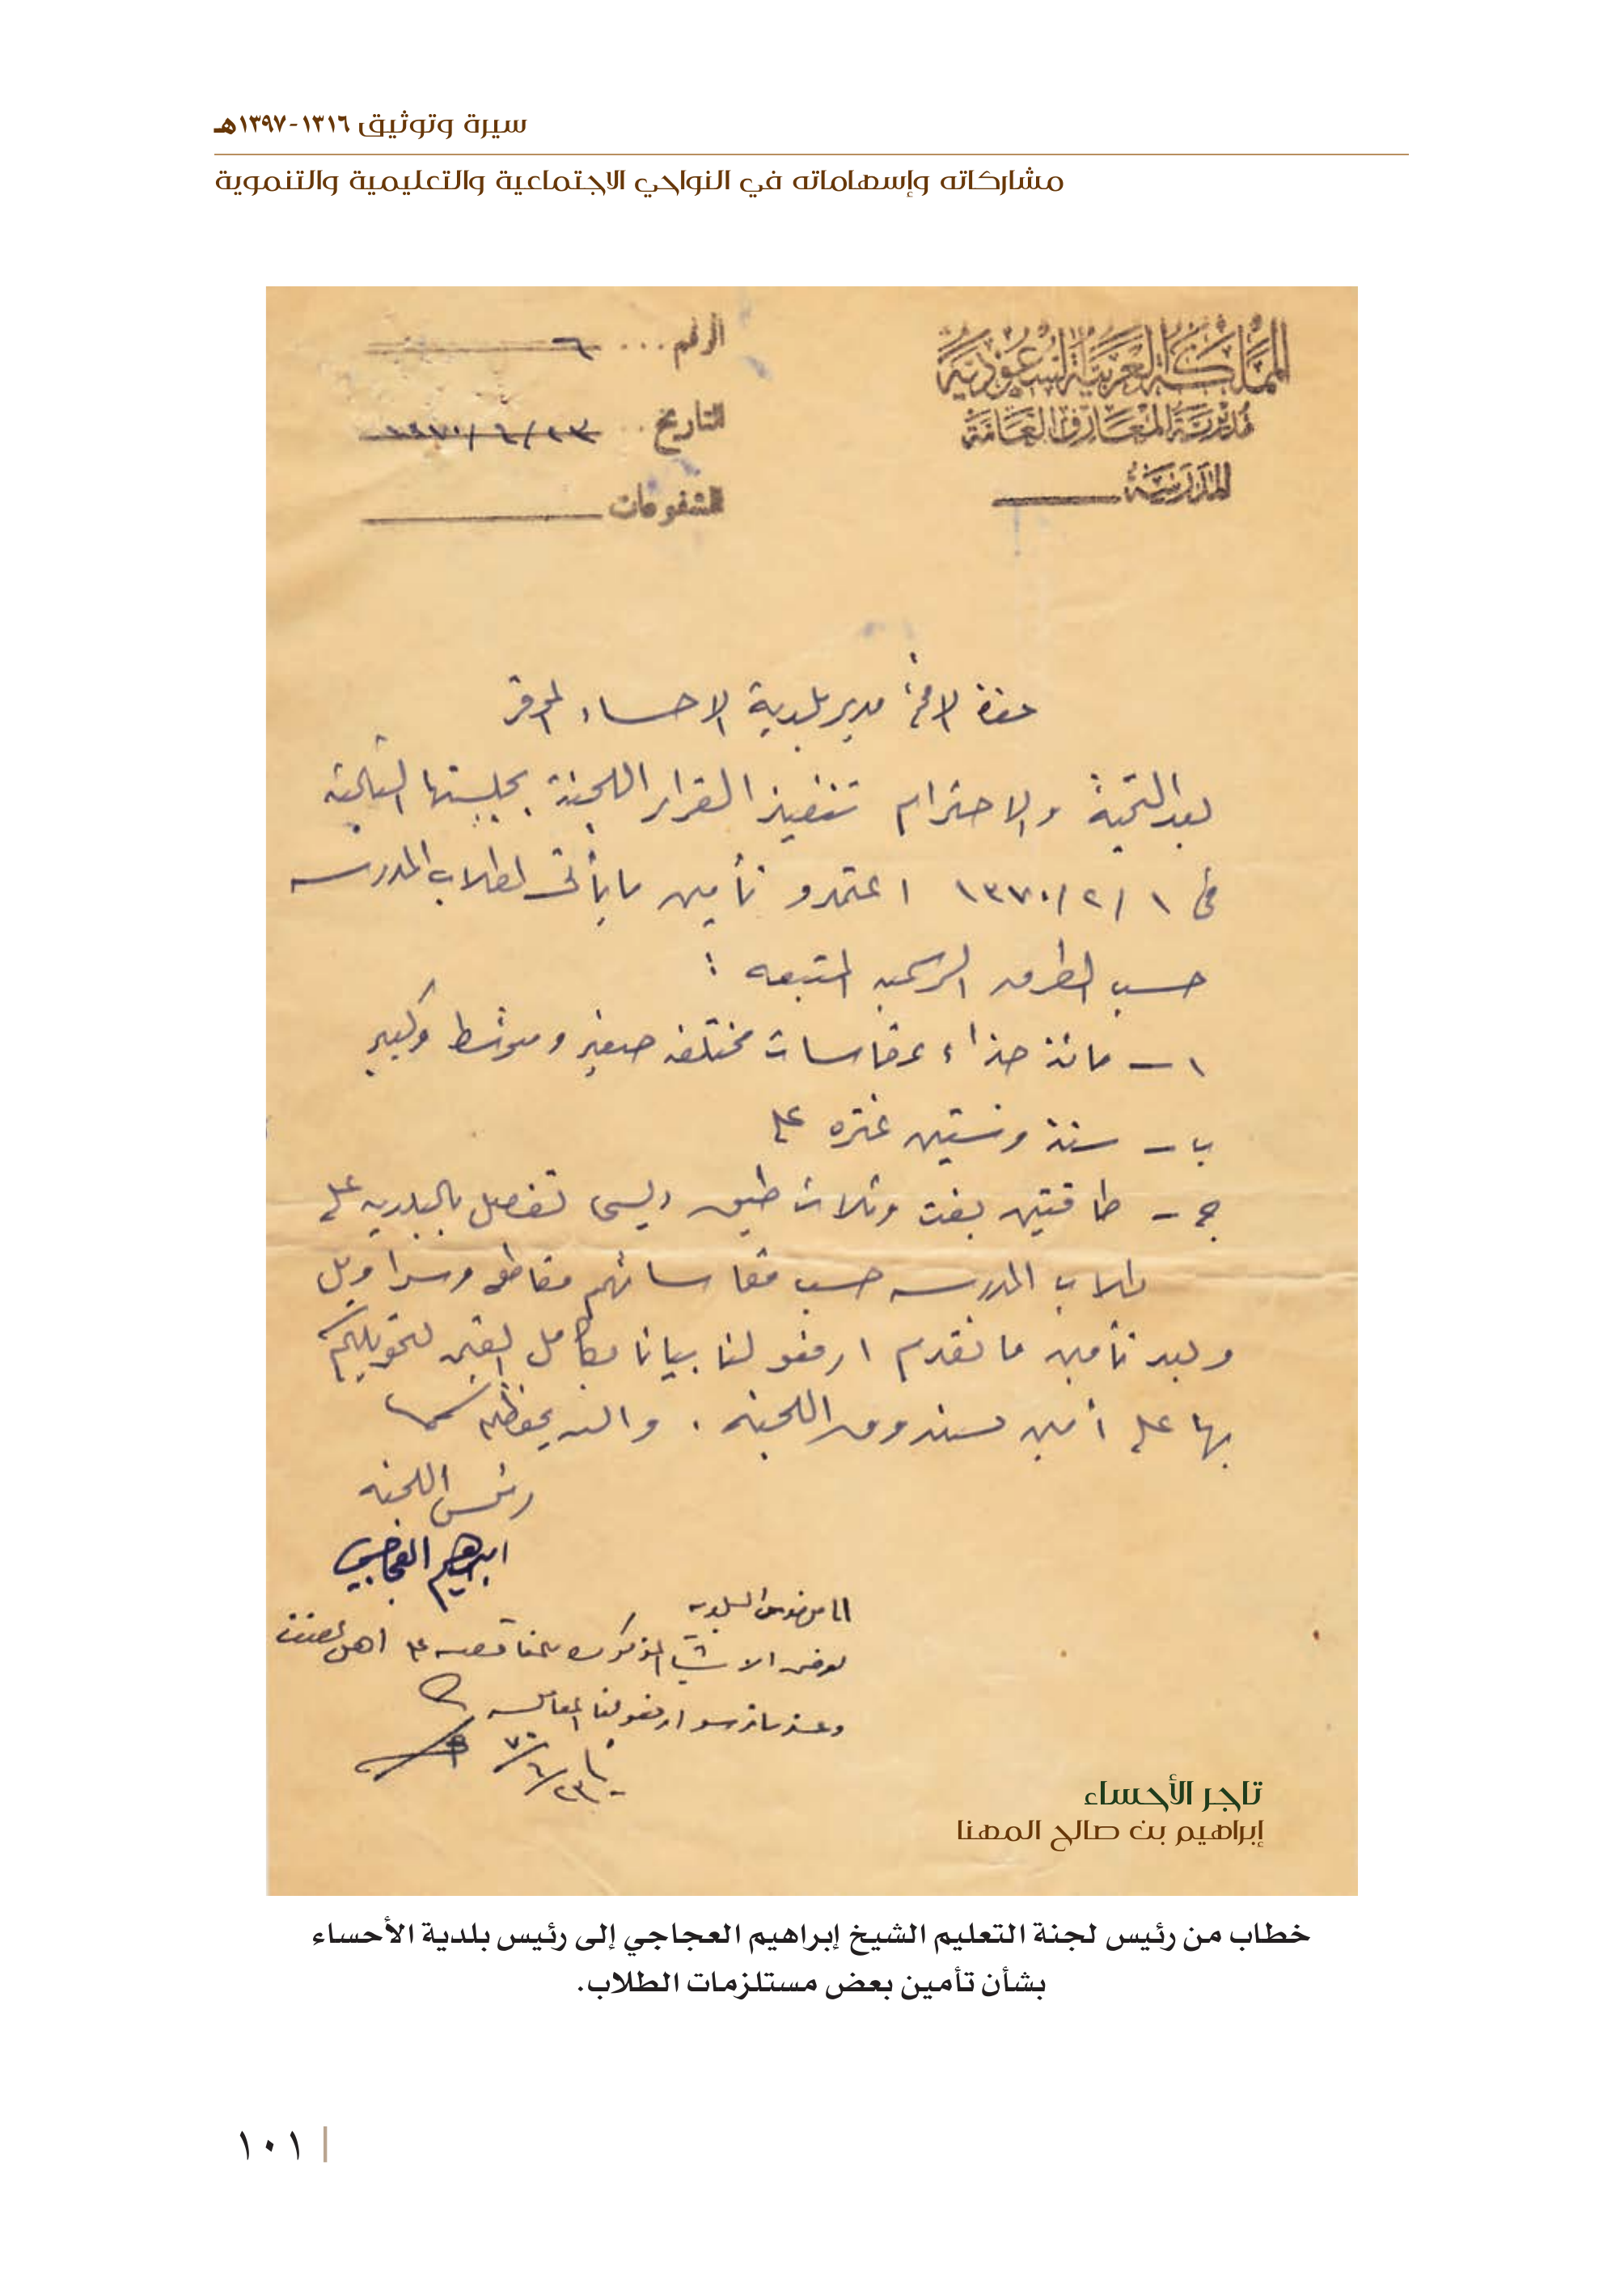 سيرة وتوثيق ١٣١٦-١٣٩٧هـ
مشاركاته وإسهاماته في النواحي الاجتماعية والتعليمية والتنموية
المملكة العربية السعودية
مديرية المعارف العامة
المدرسة
الرقم ... ٦
التاريخ .. ٢٣/٦/١٣٧٠
المشفوعات
حضرة الافخم مدير بلدية الاحساء الموقر
بعد التحية والاحترام تنفيذ القرار اللجنة بجلستها
في ١/٢/١٣٧٠ اعتمدو تأمين ما يأتي لطلاب المدرسه
حسب الطرق الرسميه المتبعه :
١ - مائة حذاء مختلفه صغير ومتوسط وكبير
ب - ستة وستين غتره
ج - طاقتين بفت وثلاث طيق تفصل بالبلديه على
طلاب المدرسه حسب مقاساتهم مقاطع وسراويل
وبعد تأمين ما تقدم ارفعو لنا بيانا بكامل القيمه لتحويلكم
بها على أمين صندوق اللجنه . والله يحفظكم
رئيس اللجنه
ابراهيم العجاجي
البلديه
الاشيا المذكوره على اهل
وعند ارفعو لنا المعامله
٢٣/٦/٧٠
تاجر الأحساء
إبراهيم بن صالح المهنا
خطاب من رئيس لجنة التعليم الشيخ إبراهيم العجاجي إلى رئيس بلدية الأحساء
بشأن تأمين بعض مستلزمات الطلاب.
١٠١